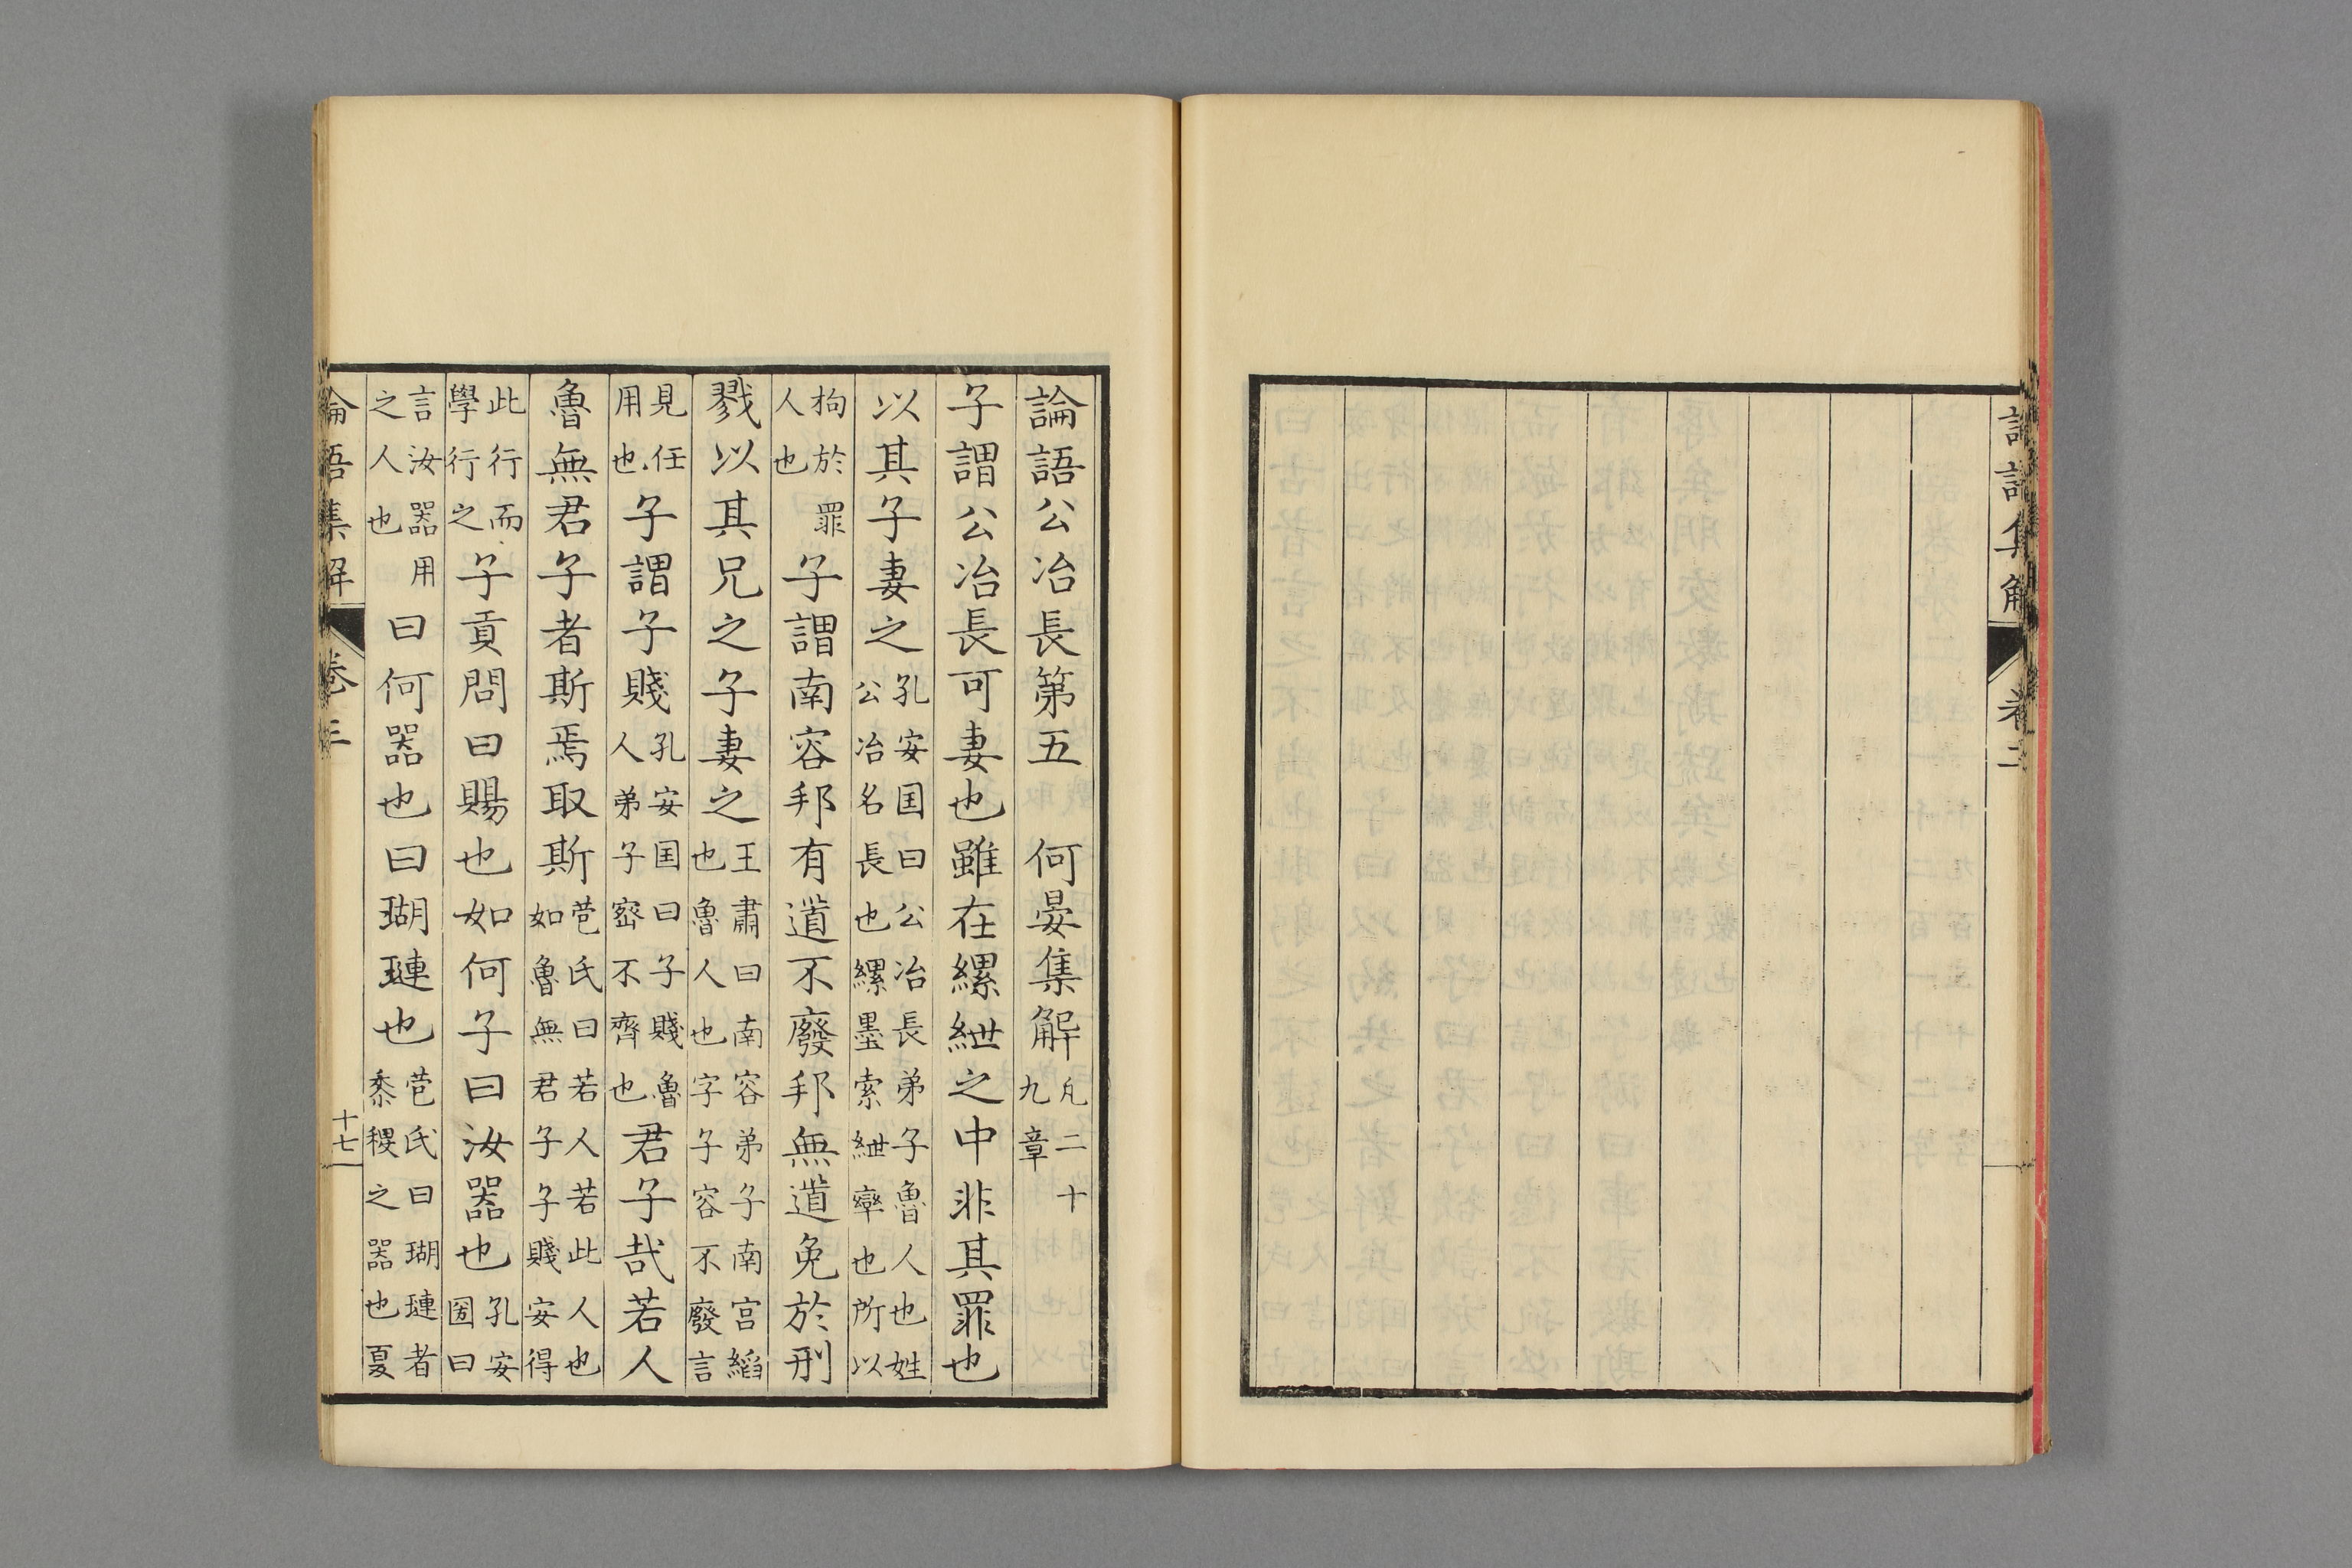 論語集解 卷二
論語公冶長第五 何晏集解 凢二十九章
子謂公冶長可妻也雖在縲紲之中非其罪也
以其子妻之 孔安囯曰公冶長弟子魯人也姓公冶名長也縲墨索紲攣也所以
拘於罪人也 子謂南容邦有道不廢邦無道免於刑
戮以其兄之子妻之 王肅曰南容弟子南宮縚也魯人也字子容不廢言
見任用也 子謂子賤 孔安囯曰子賤魯人弟子宓不齊也 君子哉若人
魯無君子者斯焉取斯 苞氏曰若人若此人也如魯無君子子賤安得
此行而學行之 子貢問曰賜也如何子曰汝器也 孔安囯曰
言汝器用之人也 曰何器也曰瑚璉也 苞氏曰瑚璉者黍稷之器也夏
論語集解 卷三 十七